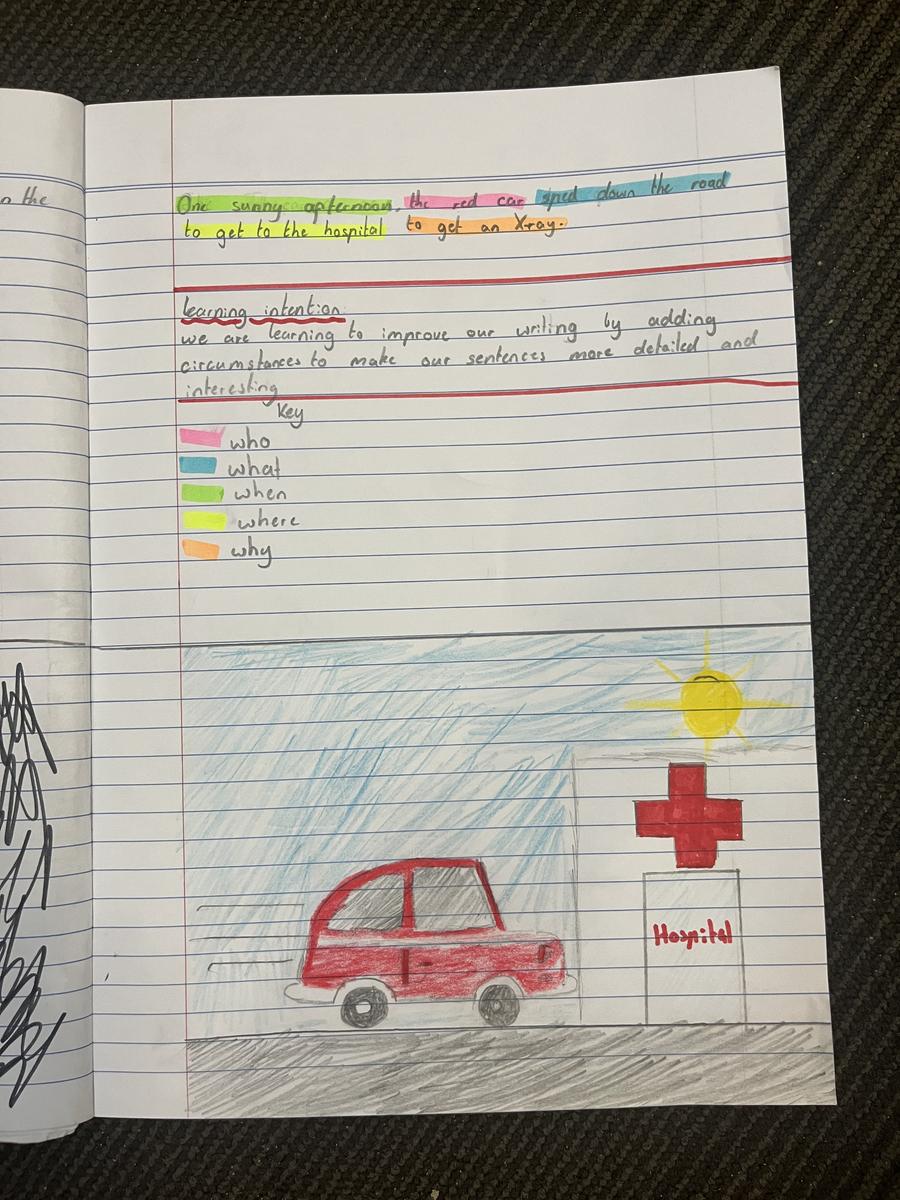 n the
One sunny afternoon, the red car sped down the road
to get to the hospital to get an Xray.
learning intention
we are learning to improve our writing by adding
circumstances to make our sentences more detailed and
interesting
Key
who
what
when
where
why
Hospital